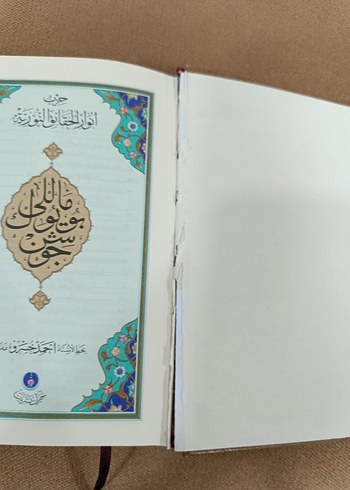 حزب
انوار الحقائق النوريه
ماللى
بويوك
جوشن
بخط الاستاذ احمد خسرو